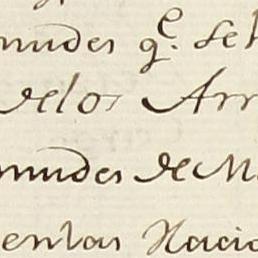 mudes q.e se h
delos Arr
mudes de M
entas Nacio